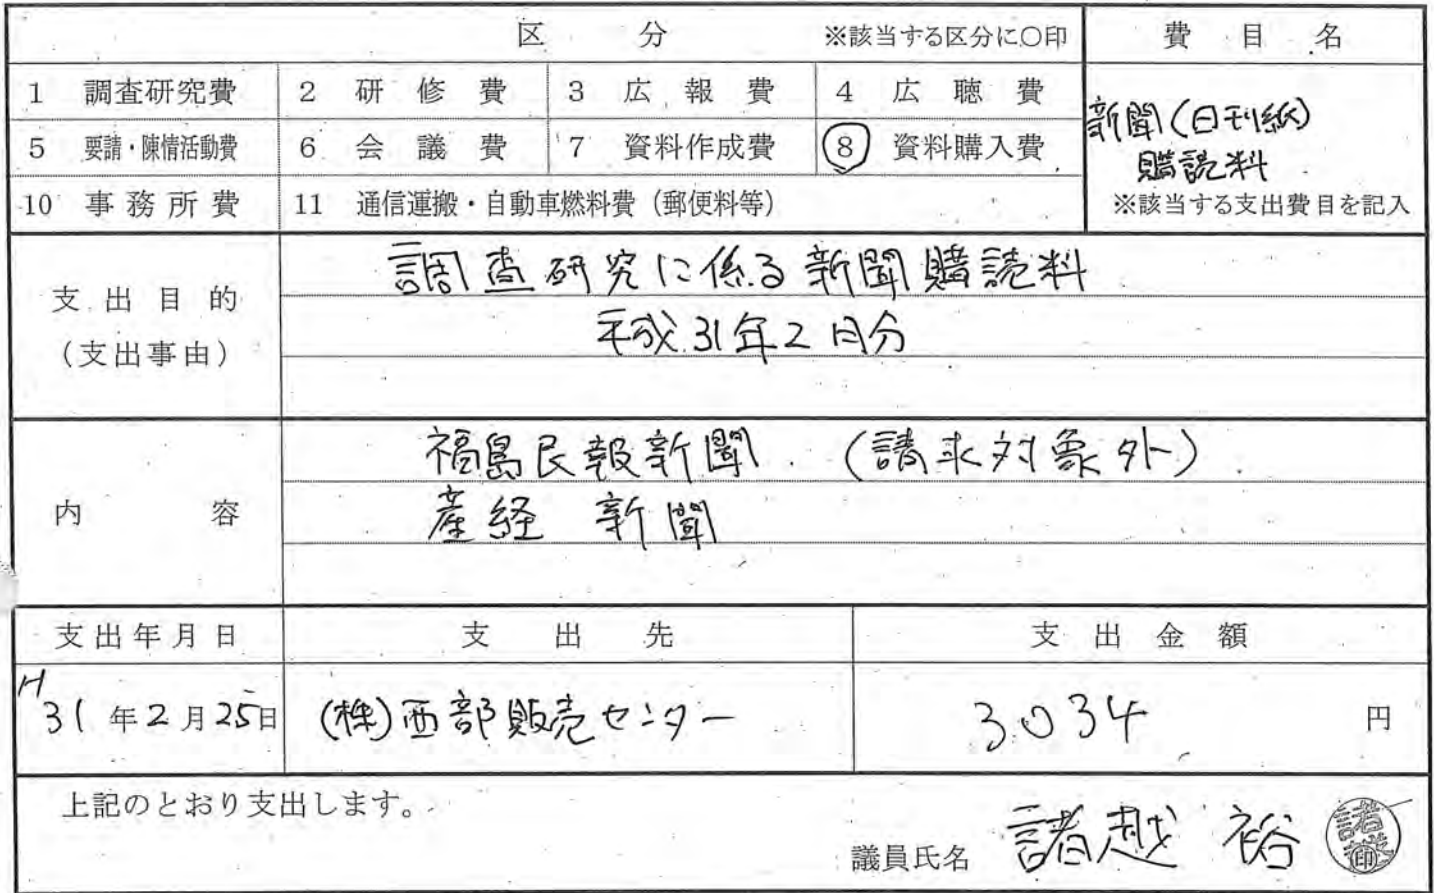 区 分 ※該当する区分に○印 費 目 名
1 調査研究費 2 研 修 費 3 広 報 費 4 広 聴 費
5 要請・陳情活動費 6 会 議 費 7 資料作成費 8 資料購入費
10 事務所費 11 通信運搬・自動車燃料費（郵便料等）
新聞(日刊紙)
購読料
※該当する支出費目を記入
支出目的
（支出事由）
調査研究に係る新聞購読料
平成31年2月分
内 容
福島民報新聞 (請求対象外)
産経 新聞
支出年月日 支 出 先 支 出 金 額
H31年2月25日 (株)西部販売センター 3034 円
上記のとおり支出します。
議員氏名 諸越 裕 印